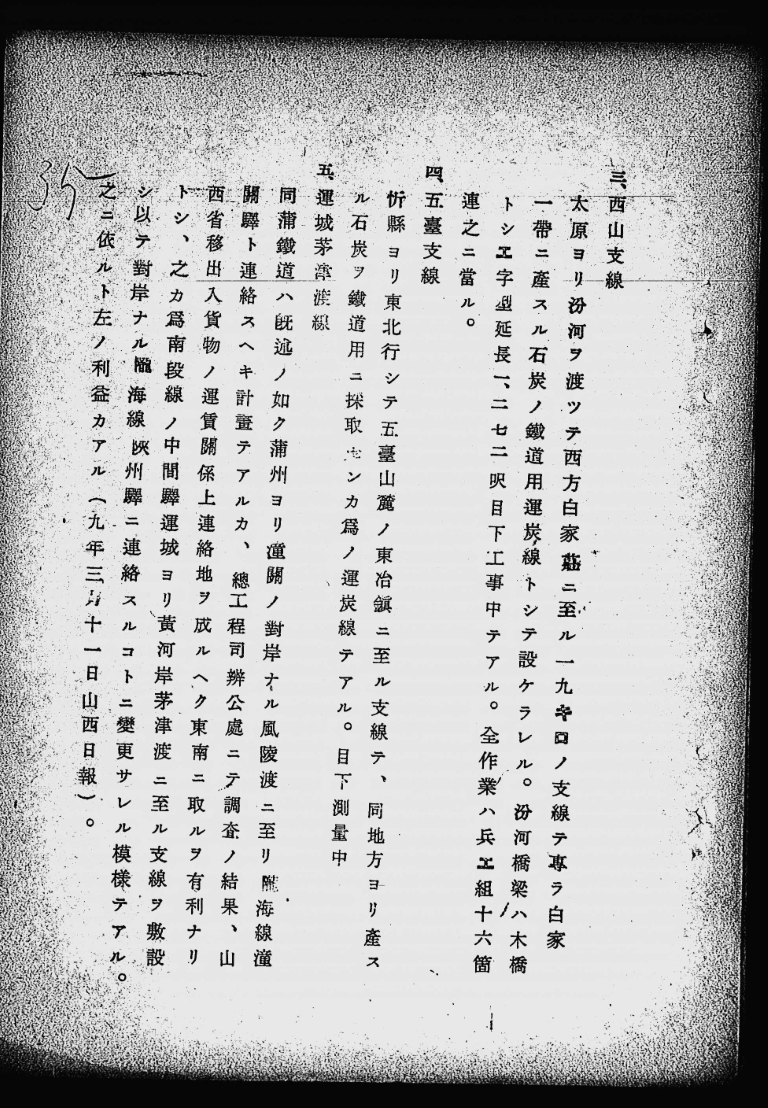 三、西山支線
太原ヨリ汾河ヲ渡ツテ西方白家莊ニ至ル一九キロノ支線テ專ラ白家
一帶ニ產スル石炭ノ鐵道用運炭線トシテ設ケラレル。汾河橋梁ハ木橋
トシ工字型延長一、二七二呎目下工事中テアル。全作業ハ兵工組十六箇
連之ニ當ル。
四、五臺支線
忻縣ヨリ東北行シテ五臺山麓ノ東冶鎭ニ至ル支線テ、同地方ヨリ產ス
ル石炭ヲ鐵道用ニ採取センカ爲ノ運炭線テアル。目下測量中
五、運城茅津渡線
同蒲鐵道ハ既述ノ如ク蒲州ヨリ潼關ノ對岸ナル風陵渡ニ至リ隴海線潼
關驛ト連絡スヘキ計畫テアルカ、總工程司辦公處ニテ調査ノ結果、山
西省移出入貨物ノ運賃關係上連絡地ヲ成ルヘク東南ニ取ルヲ有利ナリ
トシ、之カ爲南段線ノ中間驛運城ヨリ黃河岸茅津渡ニ至ル支線ヲ敷設
シ以テ對岸ナル隴海線陝州驛ニ連絡スルコトニ變更サレル模樣テアル。
之ニ依ルト左ノ利益カアル（九年三月十一日山西日報）。
35